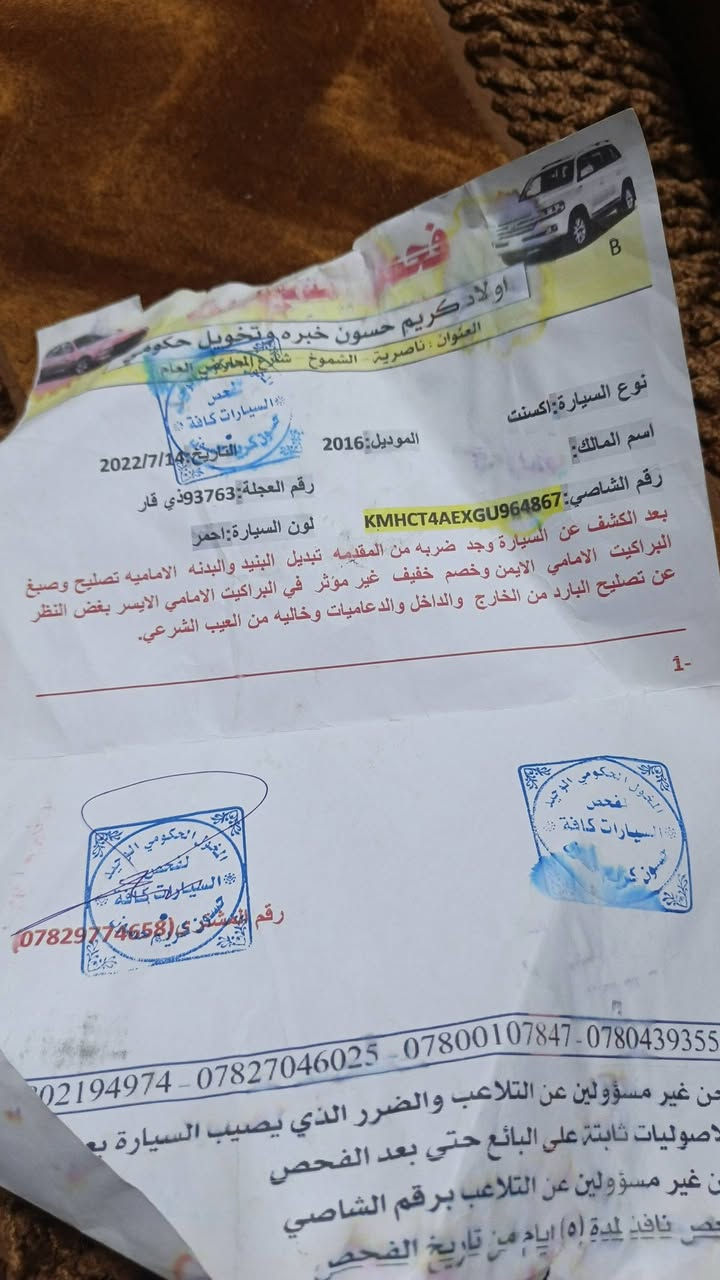 فحص
B
اولاد كريم حسون خبره وتخويل حكومي
العنوان : ناصرية - الشموخ - شارع المعارض العام
نوع السيارة:اكسنت
اسم المالك: الموديل:2016 التاريخ:2022/7/14
رقم الشاصي:KMHCT4AEXGU964867 رقم العجلة:93763ذي قار
لون السيارة:احمر
بعد الكشف عن السيارة وجد ضربه من المقدمه تبديل البنيد والبدنه الاماميه تصليح وصبغ
البراكيت الامامي الايمن وخصم خفيف غير موثر في البراكيت الامامي الايسر بغض النظر
عن تصليح البارد من الخارج والداخل والدعاميات وخاليه من العيب الشرعي.
1-
المخول الحكومي الوحيد
لفحص
السيارات كافة
حسون كريم
المخول الحكومي الوحيد
لفحص
السيارات كافة
حسون كريم
لفحص
السيارات كافة
حسون كريم
رقم المشتري(07829774658)
02194974 - 07827046025 - 07800107847-0780439355
حن غير مسؤولين عن التلاعب والضرر الذي يصيب السيارة بع
لاصوليات ثابتة على البائع حتى بعد الفحص
ن غير مسؤولين عن التلاعب برقم الشاصي
حص نافذ لمدة (٥) ايام من تاريخ الفحص